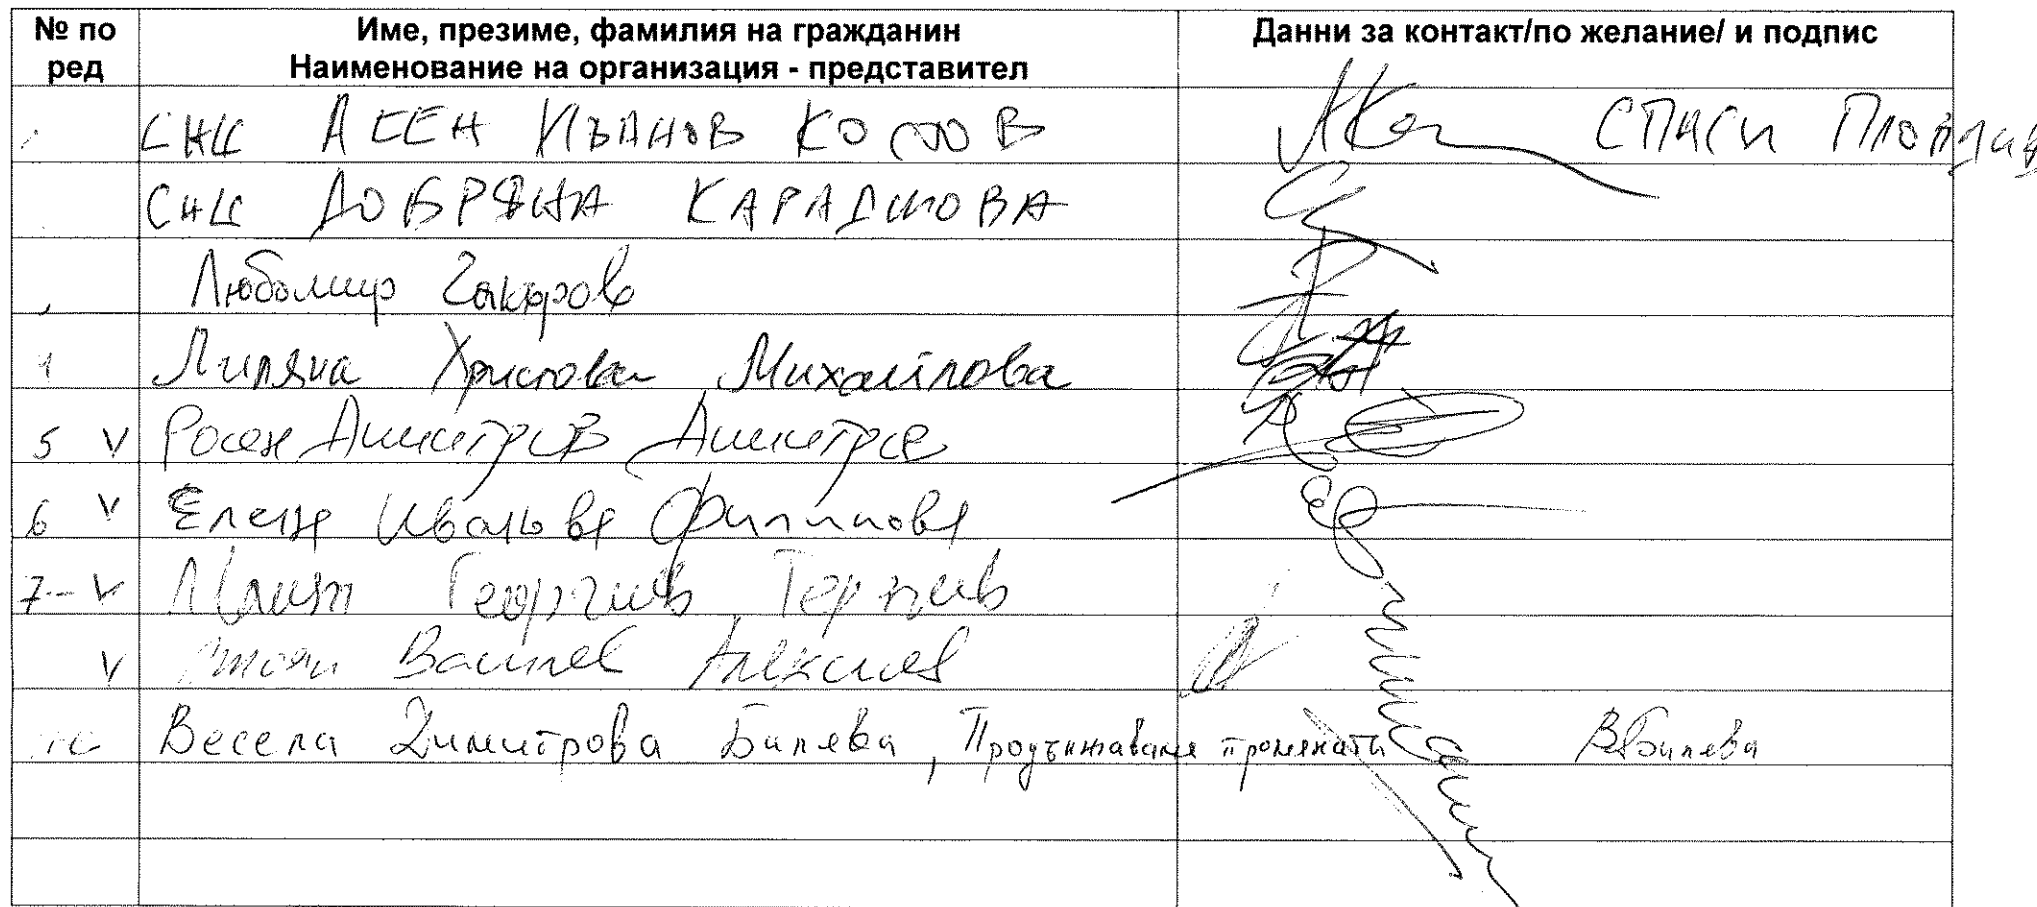 № по ред
Име, презиме, фамилия на гражданин
Наименование на организация - представител
Данни за контакт/по желание/ и подпис
СНЦ АСЕН ИВАНОВ КОСТОВ СПАСИ ПЛОВДИВ
СНЦ ДОБРЯНА КАРАДИМОВА
Любомир Чакъров
Миляна Христова Михайлова
5 V Росен Димитров Димитров
6 V Елена Иванова Филипова
7 V Георгиев Терзиев
V Стоян Василев Алексиев
Весела Димитрова Билева, Продължаваме промяната ВБилева